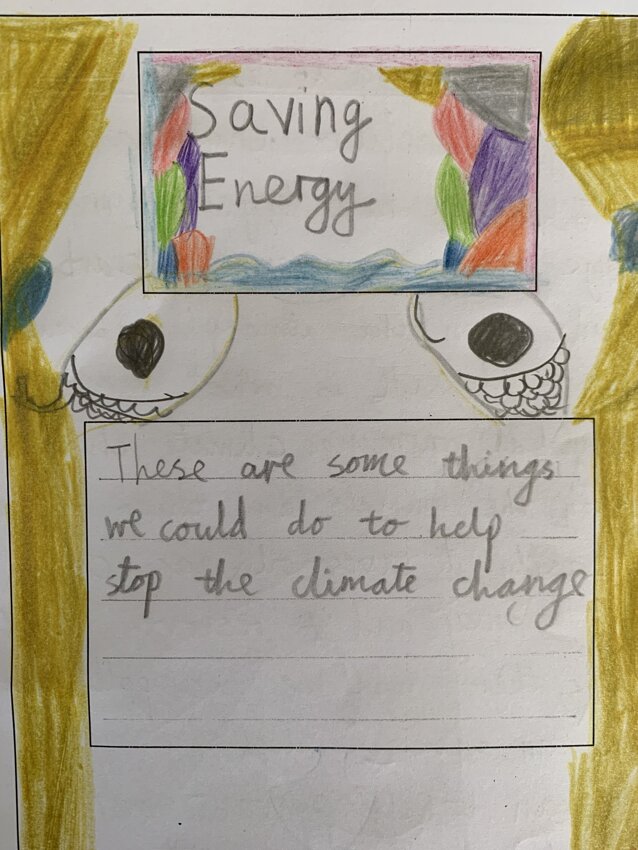 Saving
Energy
These are some things
we could do to help
stop the climate change